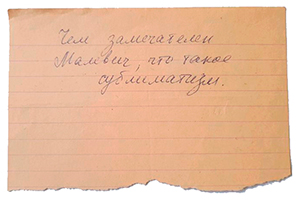 Чем замечателен
Малевич, что такое
сублиматизм.